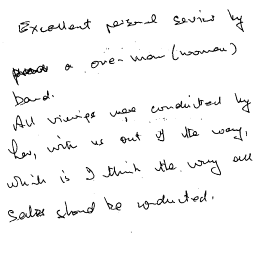 Excellent personal service by
a one-man (woman)
band.
All viewings were conducted by
her, with us out of the way,
which is I think the way all
sales should be conducted.